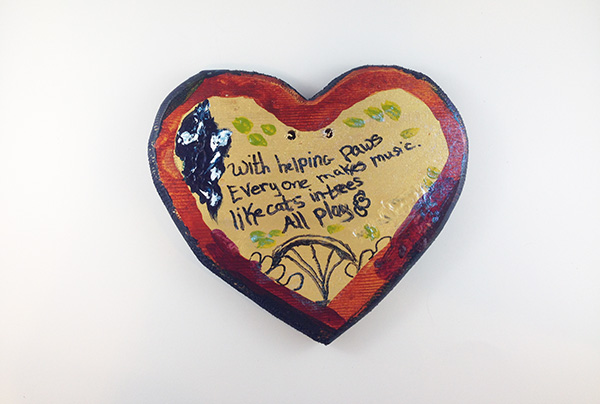 With helping paws
Everyone makes music.
like cats in trees
All play